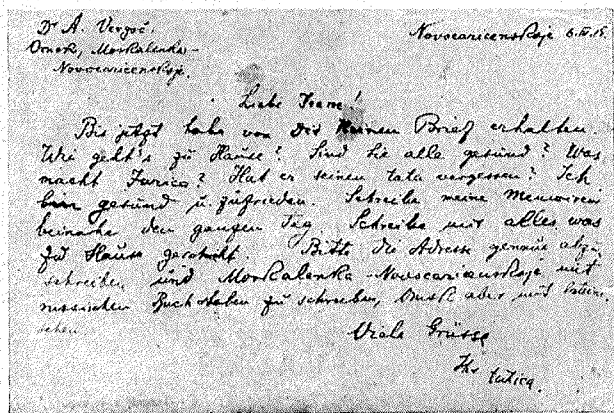 Dr A. Vergoč.
Novocaricenskoje 6.IV.15.
Omsk, Moskalenka-
Novocaricenskoje.
Liebe Irene!
Bis jetzt habe von Dir keinen Brief erhalten.
Wie geht's zu Hause? Sind Sie alle gesund? Was
macht Jurica? Hat er seinen tata vergessen? Ich
bin gesund u. zufrieden. Schreibe meine Memoiren
beinahe den ganzen Tag. Schreibe mir alles was
zu Hause geschieht. Bitte die Adresse genau abzu
schreiben und Moskalenka-Novocaricenskoje mit
russischen Buchstaben zu schreiben, Omsk aber mit lateini
schen
Viele Grüsse
Ihr